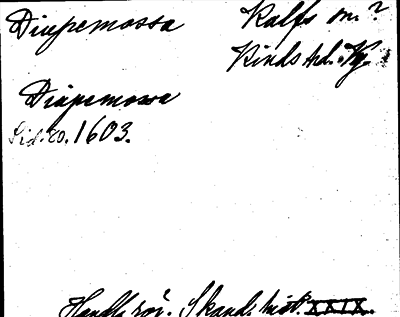 Diupemossa Kalfs sn. ?
Kinds hd. Äg.
Diupemowa
Sid. 20. 1603.
Handl. rör. Skand: hist. XXIX.